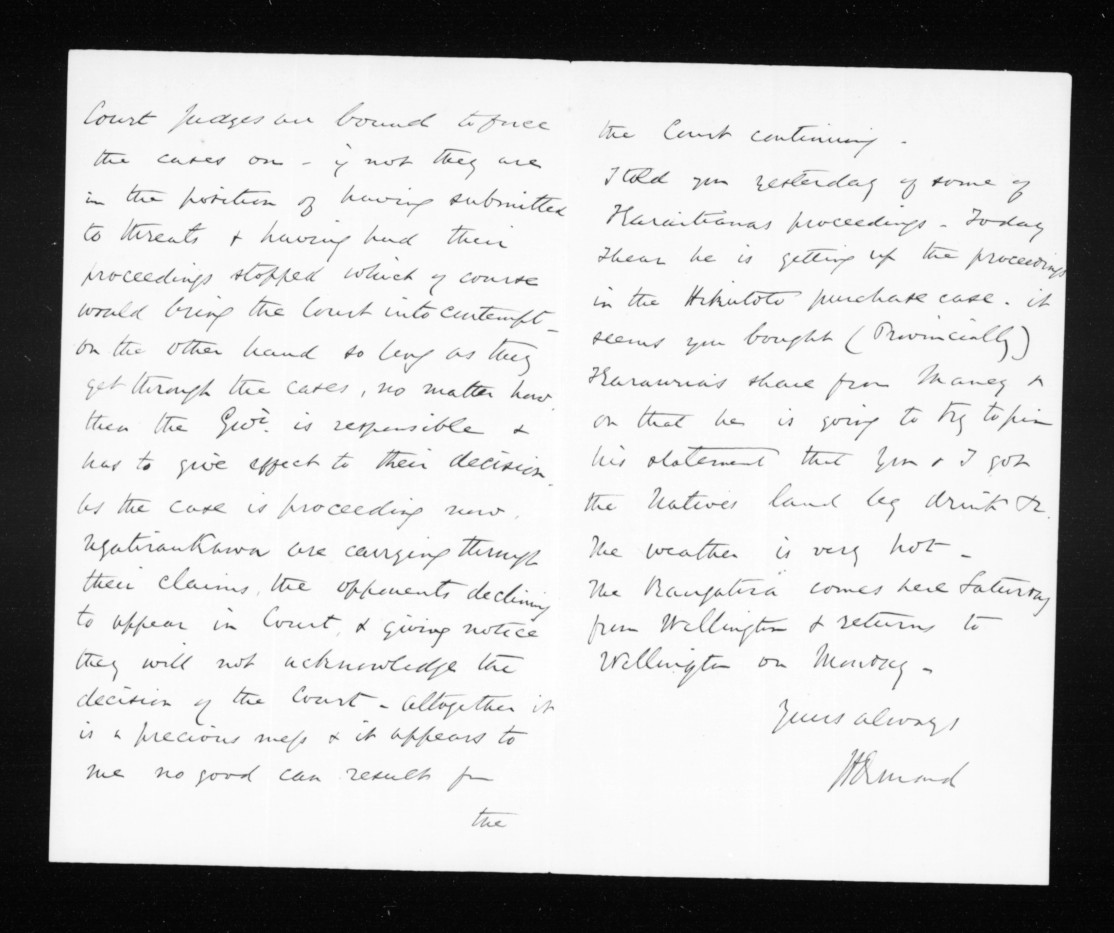 Court Judges are bound to force
the cases on - if not they are
in the position of having submitted
to threats & having had their
proceedings stopped which of course
would bring the Court into contempt -
on the other hand so long as they
get through the cases, no matter how,
then the Govt. is responsible &
has to give effect to their decision.
As the case is proceeding now,
Ngatiraukawa are carrying through
their claims, the opponents declining
to appear in Court, & giving notice
they will not acknowledge the
decision of the Court - altogether it
is a precious mess & it appears to
me no good can result from
the
the Court continuing -
I told you yesterday of some of
Karaitianas proceedings - Today
I hear he is getting up the proceedings
in the Hikutoto purchase case. it
seems you bought (Provincially)
Karauria's share from Maney &
on that he is going to try to pin
his statement that you & I got
the Natives land by drink &c.
The weather is very hot -
The Rangatira comes here Saturday
from Wellington & returns to
Wellington on Monday -
Yours always
JDOrmond